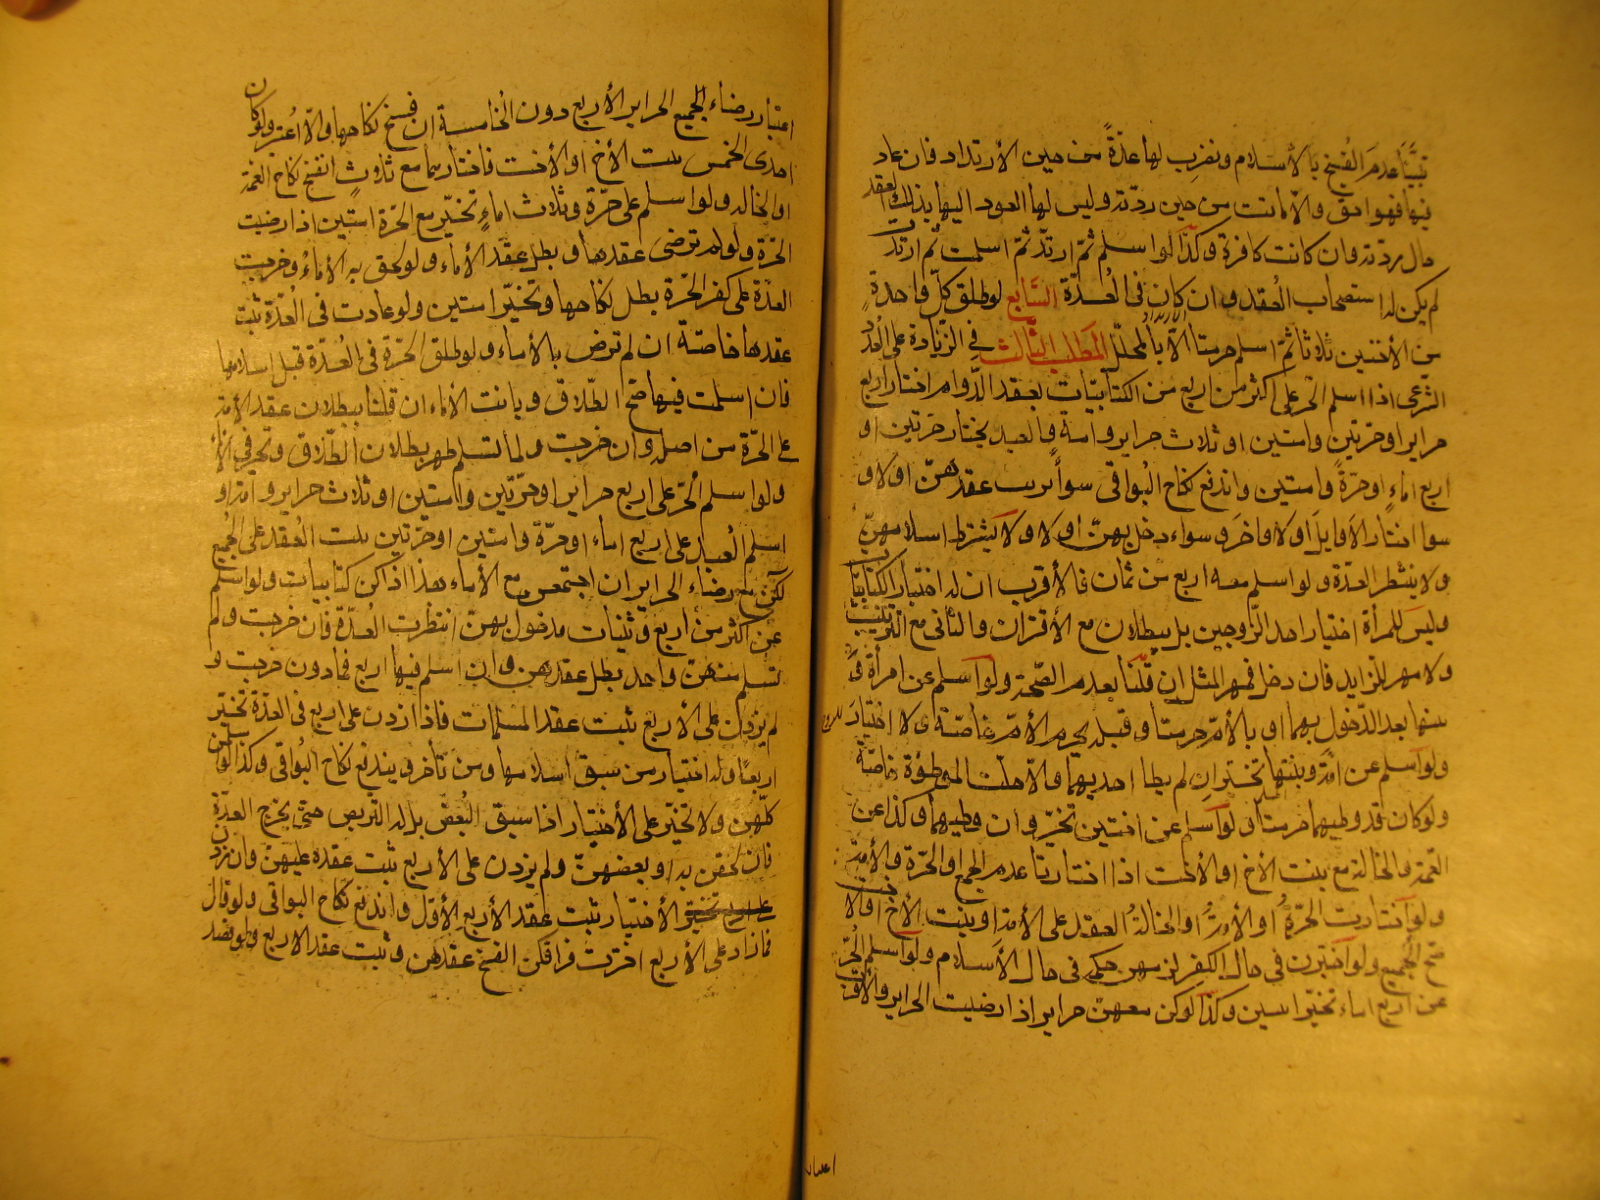 تبيّنا عدم الفسخ بالأسلام ونضرب لها عدّة من حين الأرتداد فان عاد
فيها فهو احق والّا بانت من حين ردّته وليس لها العود اليها بذلك العقد
حال ردّته وان كانت كافرة وكذا لو اسلم ثمّ ارتدّ ثمّ اسلمت ثم ارتدّت
لم يكن له استصحاب العقد وان كان في العدّة السّابع لو طلق كلّ واحدة
من الأختين ثلاثا ثمّ اسلم حرمتا الّا بالمحلل المطلب الثّالث في الزّيادة على العدد
الشّرعي اذا اسلم الحر على اكثر من اربع من الكتابيّات بعقد الدّوام اختار اربع
حراير او حرّتين وامتين او ثلاث حراير وامة والعبد يختار حرّتين او
اربع اماء او حرّة وامتين واندفع نكاح البواقي سواء ترتب عقدهن اولا و
سوا اختار الأوايل اولا واخر وسواء دخل بهنّ اولا ولا يشترط اسلامهنّ
ولا ينتظر العدّة ولو اسلم معه اربع من ثمان فالأقرب ان له اختيار الكتابيّات
وليس للمرأة اختيار احد الزّوجين بل يبطلان مع الأقتران والثّاني مع الترتيب
ولا مهر للزّايد فان دخل فمهر المثل ان قلنا بعدم الصّحة ولو اسلم عن امرأة و
بنتها بعد الدّخول بهما او بالأمّ حرمتا وقبله يحرم الأمّ خاصّة ولا اختيار
ولو اسلم عن امة وبنتها تخيّر ان لم يطا احديهما والّا حلّت الموطؤة خاصّة
ولو كان قد وطيهما حرمتا ولو اسلم عن اختين تخيّر وان وطيهما وكذا عن
العّمة والخالة مع بنت الأخ او الأخت اذا اختارتا عدم الجمع او الحرّة والأمة
ولو اختارت الحرّة او العمّة او الخالة العقد على الأمة او بنت الأخ او الأخت
صح الجميع ولو اخترن في حال الكفر لزمهن حكمه في حال الأسلام ولو اسلم الحرّ
عن اربع اماء تخيّر امتين وكذا لو كن معهنّ حراير اذا رضيت الحراير والأقرب
اعتبار
اعتبار رضاء الجميع الحراير الأربع دون الخامسة ان فسخ نكاحها والّا اعتبر ولو كان
احدى الخمس بنت الأخ او الأخت فاختارها مع ثلاث انفسخ نكاح العّمة
او الخالة ولو اسلم على حرّة وثلاث اماء تخيّر مع الحرّة امتين اذا رضيت
الحرّة ولو لم ترضى عقدها وبطل عقد الأماء ولو لحق به الأماء وخرجت
العدّة على كفر الحّرة بطل نكاحها وتخيّر امتين ولو عادت في العدّة ثبت
عقدها خاصّة ان لم ترض بالأماء ولو طلق الحرّة في العدّة قبل اسلامها
فان اسلمت فيها صح الطّلاق وبانت الأماء ان قلنا ببطلان عقد الأمة
على الحرّة من اصله وان خرجت ولما تسلم ظهر بطلان الطّلاق
ولو اسلم الحّر على اربع حراير او حرّتين وامتين او ثلاث حراير وامة او
اسلم العبد على اربع اماء او حرّة وامتين او حرّتين ثبت العقد على الجميع
لكن مع رضاء الحراير ان اجتمعن مع الأماء هذا اذا كن كتابيات ولو اسلم
عن اكثر من اربع وثنيات مدخول بهنّ انتظرت العدّة فان خرجت ولم
تسلم منهن واحدة بطل عقدهن وان اسلم فيها اربع فما دون خرجت و
لم يزدن على الأربع ثبت عقد المسلمات فاذا زدن على اربع في العدّة تخيّر
اربعا وله اختيار من سبق اسلامها ومن تأخر ويندفع نكاح البواقي وكذا لو اسلمن
كلّهن ولا تخيّر على الأختيار اذا سبق البعض بل له التربص حتى يخرج العدّة
فان لحقن به او بعضهنّ ولم يزدن على الأربع ثبت عقده عليهن وان زدن
الأختيار ثبت عقد الأربع الأوّل واندفع نكاح البواقي ولو قال
فما زاد على الأربع اخترت فراقكن انفسخ عقدهن وثبت عقد الاربع